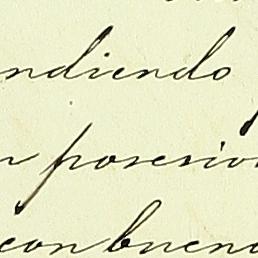 ndiendo
n posesion
con buena